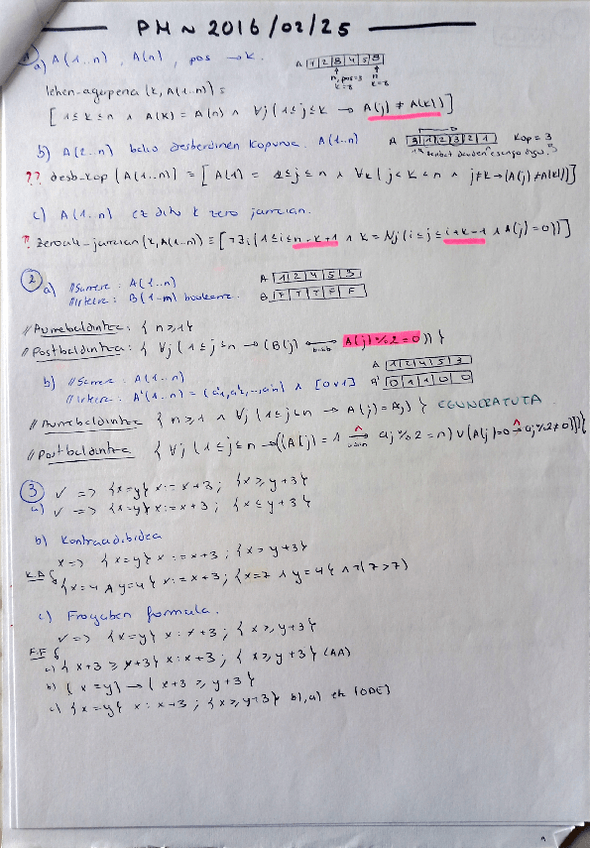 PMN 2016/02/25
1
a) A(1..n), A(n), pos → k.
A 1 2 8 4 5 8
n, pos=3
k=8
lehen-agerpena (k, A(1..n)) ≡
[ 1≤k≤n ∧ A(k) = A(n) ∧ ∀j (1≤j≤k → A(j) ≠ A(k)) ]
b) A(1..n) balio desberdinen kopurua. A(1..n)
A 3 1 2 3 2 1 Kop = 3
?? desb-kop (A(1..n)) ≡ [ A(1) = 1≤j≤n ∧ ∀k ( j<k≤n ∧ j≠k → (A(j) ≠ A(k)) ]
c) A(1..n) ez ditu k zero jarraian.
? zeroak-jarraian (k, A(1..n)) ≡ [ ¬∃i (1≤i≤n-k+1 ∧ k = Nj (i≤j≤i+k-1 ∧ A(j)=0)) ]
2
a) //Sarrera: A(1..n)
A 1 2 4 5 3
//Irteera: B(1..n) boolearra.
B F T T F F
//Aurrebaldintza: { n≥1 }
//Postbaldintza: { ∀j (1≤j≤n → (B(j) ↔ A(j)%2=0)) }
b) //Sarrera: A(1..n)
A 1 2 4 5 3
//Irteera: A'(1..n) = (a'1, a'2, ..., a'n) ∧ [0 v 1]
A' 0 1 1 0 0
//Aurrebaldintza { n≥1 ∧ ∀j (1≤j≤n → A(j) = Aj) } EGUNERATUTA.
//Postbaldintza { ∀j (1≤j≤n → ((A(j) = 1 → aj%2=n) ∨ (A(j)=0 → aj%2≠0))) }
3
✓ => {x=y} x:=x+3; {x≥y+3}
a) ✓ => {x=y} x:=x+3; {x≤y+3}
b) Kontraadibidea
x => {x=y} x:=x+3; {x>y+3}
K.A {x=4 ∧ y=4} x:=x+3; {x=7 ∧ y=4} ∧ ¬(7>7)
c) Frogaben formula.
✓ => {x=y} x:x+3; {x≥y+3}
F.F
a) {x+3 ≥ y+3} x:x+3; {x≥y+3} (AA)
b) (x=y) → (x+3 ≥ y+3)
c) {x=y} x:x+3; {x≥y+3} b), a) eta (ODE)